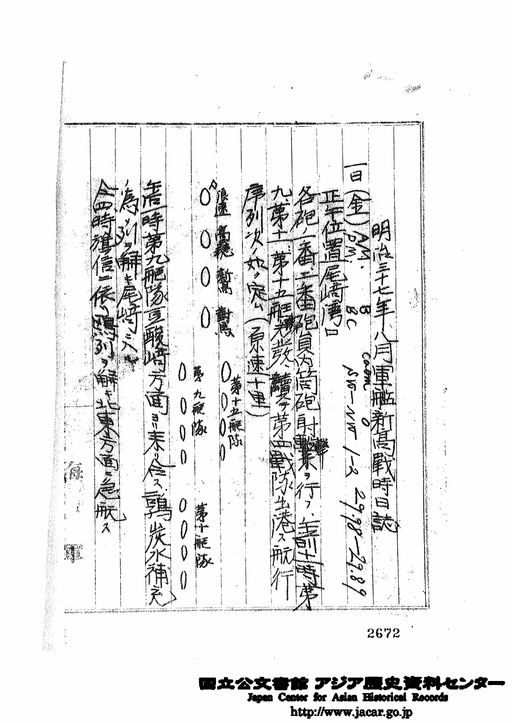 明治三十七年八月軍艦新高戦時日誌
一日(金) AM: B 0 29.98-29.89
PM: BC calm SW-NW 1-2
正午位置尾崎湾口
各砲一番二番砲員内筒砲射撃ヲ行フ、午前十時第
九第十、第十五艇隊出発、続テ第四戦隊出港ス航行
序列次如ク定ム(原速十里)
高 新
第十五艇隊
第九艇隊
第十艇隊
午后一時第九艇隊豆酘崎方面ヨリ来リ合ス、鶉炭水補充
ノ為メ列ヲ解キ尾崎ニ入ル
仝四時信ニ依リ列ヲ解キ北東方面ニ急航ス
海軍
2672
国立公文書館 アジア歴史資料センター
Japan Center for Asian Historical Records
http://www.jacar.go.jp